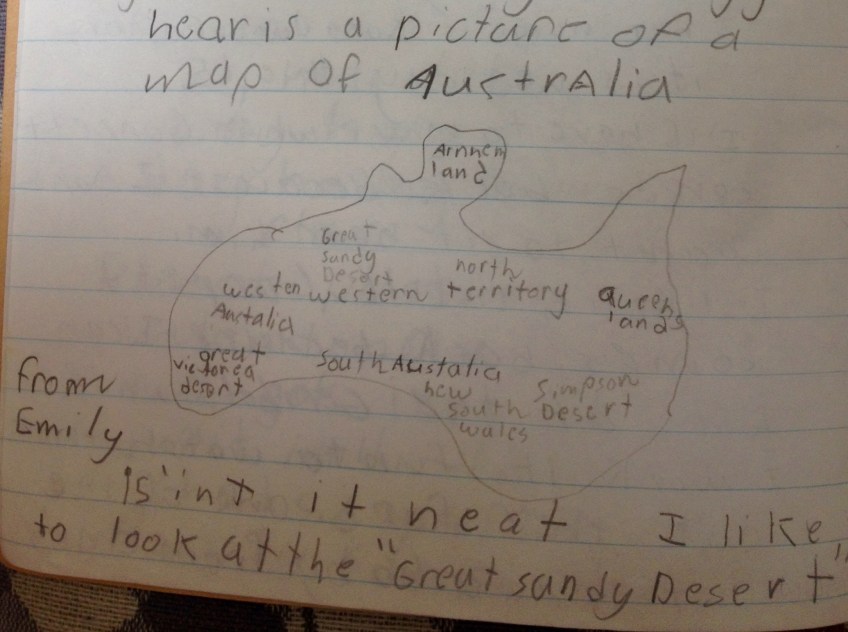 hear is a picture of a
map of AustrAlia
Arnhem
land
Great
sandy
Desert
north
territory
westen western
Austalia
Queens
lands
great
victorea
desert
South Austalia
new
south
wales
Simpson
Desert
from
Emily
is'int it neat I like
to look at the "Great sandy Desert"